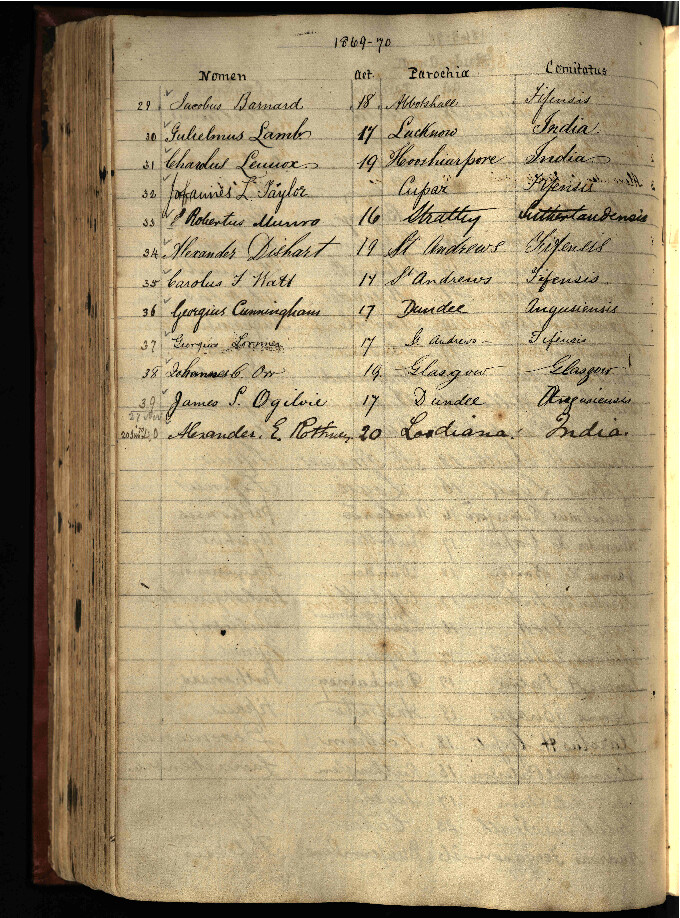 1869-70
Nomen Aet. Parochia Comitatus
29 Jacobus Barnard 18 Abbotshall Fifensis
30 Gulielmus Lamb 17 Lucknow India
31 Charolus Lennox 19 Hooshiarpore India
32 Johannes L Taylor Cupar Fifensis
33 Robertus Munro 16 Strathy Sutherlandensis
34 Alexander Dishart 19 St Andrews Fifensis
35 Carolus F Watt 17 St Andrews Fifensis
36 Georgius Cunningham 17 Dundee Angusiensis
37 Georgius Lorimer 17 St Andrews Fifensis
38 Johannes C Orr 19 Glasgow Glasgow
39 James P. Ogilvie 17 Dundee Angusiensis
Alexander E. Rothney 20 Loodiana India